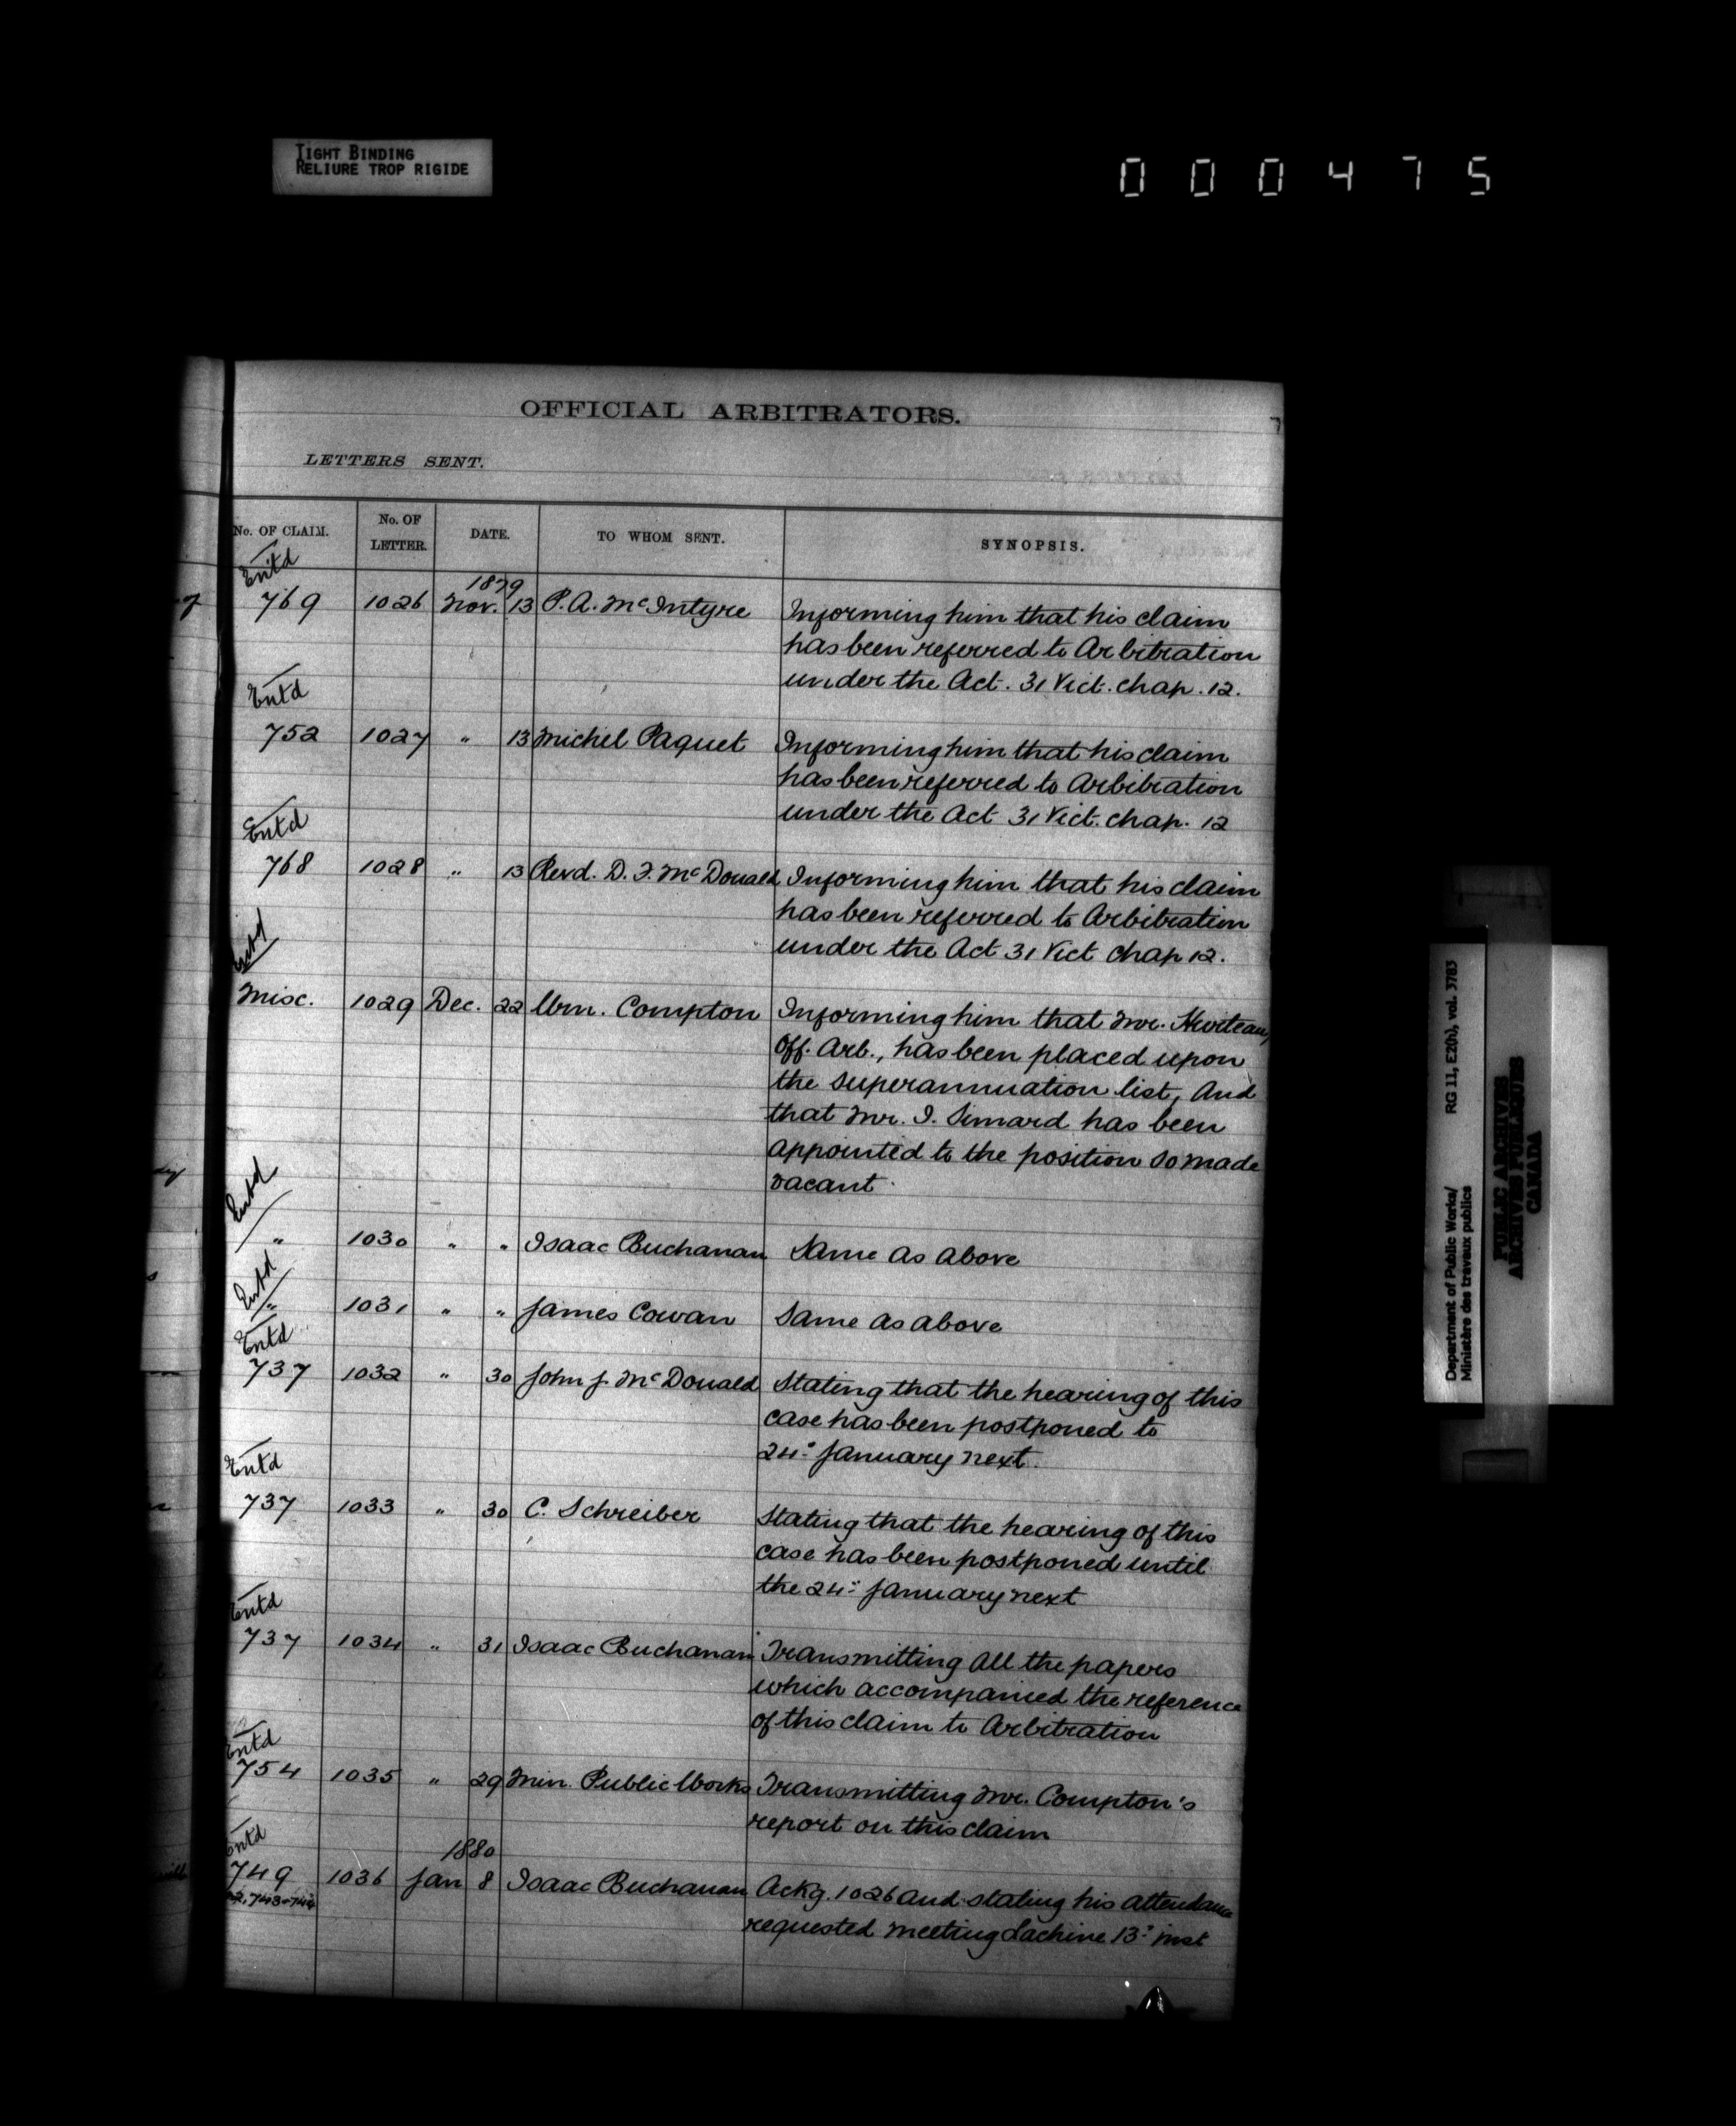 TIGHT BINDING
RELIURE TROP RIGIDE
000475
OFFICIAL ARBITRATORS.
7
LETTERS SENT.
No. OF CLAIM. No. OF LETTER. DATE. TO WHOM SENT. SYNOPSIS.
Entd
1879
769 1026 Nov. 13 P. A. McIntyre Informing him that his claim
has been referred to Arbitration
under the Act. 31 Vict. chap. 12.
Entd
752 1027 " 13 Michel Paquet Informing him that his claim
has been referred to Arbitration
under the Act 31 Vict. chap. 12
Entd
768 1028 " 13 Revd. D. F. McDonald Informing him that his claim
has been referred to Arbitration
under the Act 31 Vict chap 12.
Entd
Misc. 1029 Dec. 22 Wm. Compton Informing him that Mr. Hurteau,
Off. Arb., has been placed upon
the superannuation list, and
that Mr. I. Simard has been
appointed to the position so made
vacant.
Entd
" 1030 " " Isaac Buchanan Same as above
Entd
" 1031 " " James Cowan Same as above
Entd
737 1032 " 30 John J. McDonald Stating that the hearing of this
case has been postponed to
24th January next.
Entd
737 1033 " 30 C. Schreiber Stating that the hearing of this
case has been postponed until
the 24th January next
Entd
737 1034 " 31 Isaac Buchanan Transmitting all the papers
which accompanied the reference
of this claim to Arbitration
Entd
754 1035 " 29 Min. Public Works Transmitting Mr. Compton's
report on this claim
Entd
1880
749 1036 Jan 8 Isaac Buchanan Ackg. 1026 and stating his attendance
requested meeting Lachine 13th inst
Department of Public Works/ RG 11, E2(h), vol. 3783
Ministère des travaux publics
PUBLIC ARCHIVES
ARCHIVES PUBLIQUES
CANADA